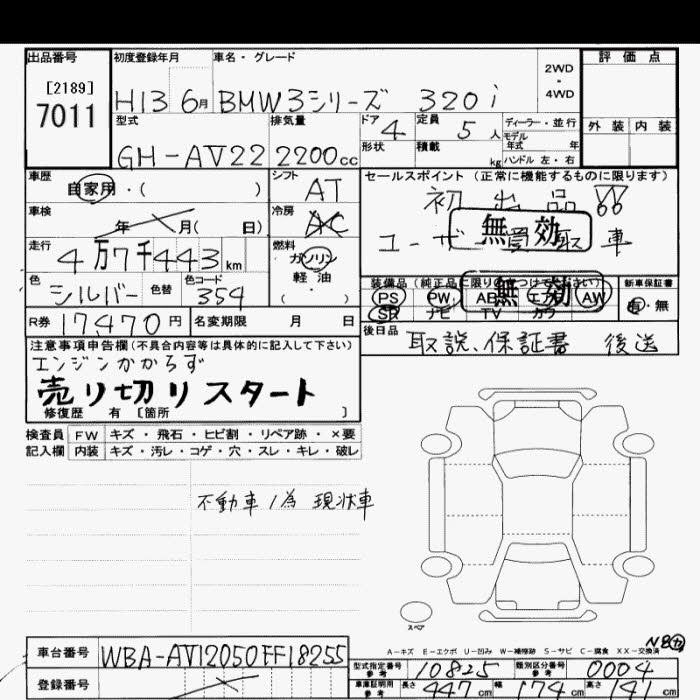 出品番号
[2189]
7011
初度登録年月
H13 6月
車名・グレード
BMW3シリーズ 320i
2WD
・
4WD
評価点
外装 内装
型式
GH-AV22
排気量
2200cc
ドア
4
定員
5人
形状
積載
kg
ディーラー・並行
モデル
年式 年
ハンドル 左・右
車歴
自家用・( )
シフト
AT
セールスポイント (正常に機能するものに限ります)
初出品!!
無効
ユーザー買取車
車検
年 月( 日)
冷房
AC
走行
4万7千443km
燃料
ガソリン
軽油
( . )
色
シルバー
色替
色コード
354
装備品(純正品に限り
つけて下さい)
無効
PS PW AB エアB AW
SR ナビ TV カワ
新車保証書
有・無
R券 17,470円
名変期限 月 日
後日品
取説、保証書 後送
注意事項申告欄(不具合内容等は具体的に記入して下さい)
エンジンかからず
売り切りスタート
修復歴 有 [箇所 ]
検査員 FW キズ・飛石・ヒビ割・リペア跡・×要
記入欄 内装 キズ・汚レ・コゲ・穴・スレ・キレ・破レ
不動車ノ為 現状車
スペア
車台番号 WBA-AV12050FF18255
登録番号
A−キズ E−エクボ U−凹み W−補修跡 S−サビ C−腐食 XX−交換済
型式指定番号
参考
10825
類別区分番号
参考
0004
車庫証明用
参考
長さ 447cm 幅 174cm 高さ 141cm